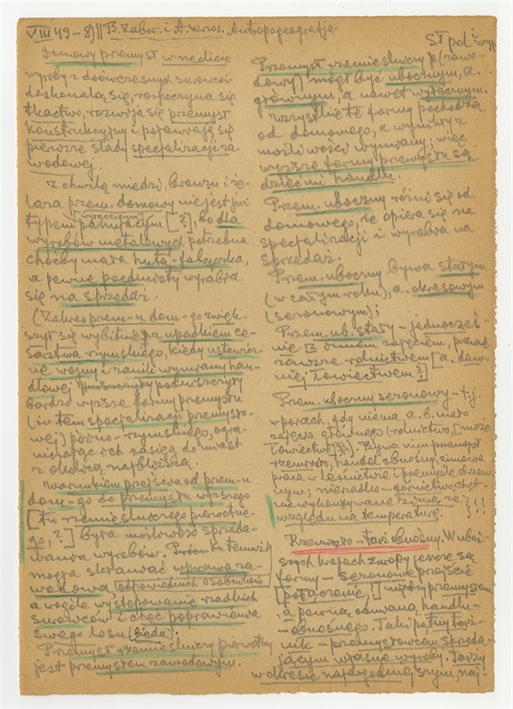 VIII 49 – 8) || B. Zabor. i A. Wrzos. Antropogeografja
St. pol.
Domowy przemysł w neolicie
wyroby z dówczesnych surowców
doskonalą się, rozpoczyna się
tkactwo, rozwija się przemysł
konstrukcyjny i pojawiają się
pierwsze ślady specjalizacji za-
wodowej.
Z chwilą miedzi, bronzu i że-
laza przem. domowy nie jest już
typem panującym [?], bo dla
wyrobów metalowych potrzebna
choćby mała huta-fabryczka,
a pewne przedmioty wyrabia
się na sprzedaż.
(Zakres przem-u dom-go zwięk-
szył się wybitnie z upadkiem ce-
sarstwa rzymskiego, kiedy ustawicz-
ne wojny i zanik wymiany han-
dlowej podniszczyły
bardzo wyższe formy przemysłu
(i w tem specjalizacji przemysło-
wej) późno-rzymskiego, ogra-
niczając ich zasiąg do miast
z okolicą najbliższą.
Warunkiem przejścia od przem-u
dom-go do przemysłu wyższego
[tu rzemieślniczego pierwotne-
go, ?] była możliwość sprzeda-
wania wyrobów. Prócz ku temu
mogła skłaniać wprawa za-
wodowa [odpowiednich osobników]
a wogóle występowanie rzadkich
surowców i chęć poprawienia
swego losu (bieda).
Przemysł rzemieślniczy pierwotny
jest przemysłem zawodowym.
Przemysł rzemieślniczy p (zawo-
dowy) mógł być ubocznym, a.
głównym, a nawet wyłącznym.
Wszystkie te formy pochodzą
od domowego, a wynikły z
możliwości wymiany; więc
wyższe formy przemysłu są
dziećmi handlu.
Przem. uboczny różni się od
domowego, że opiera się na
specjalizacji i wyrabia na
sprzedaż.
Przem. uboczny bywa stałym
(w całym roku), a. okresowym
(sezonowym);
Przem. ub. stały – jednocześ-
nie z innem zajęciem, przeważ
zawsze rolnictwem [a. daw-
niej łowiectwem?]
Przem. uboczny sezonowy – t.j.
w porach, gdy niema a. b. mało
zajęcia głównego (rolnictwo, [może
łowiectwo]?). Bywa nim przemysł
rzemieśln., handel obnośny, zimowa
praca w leśnictwie i przemyśle drzew-
nym; nierzadko – górnictwo, chęt-
nie wykonywane zimą ze
względu na temperaturę. } !!!
Rzemiosło – targ obnośny. W uboż-
szych krajach zwykły jeszcze są
formy – sezonowe przejście
[połączenie,] między przemysłem
a pewną odmianą handlu –
obnośnego. Taki pełny targ-
nik – przemysłowcem, sprzeda-
jącym własne wyroby. Targi
w okresie najdogodniejszym, naj-